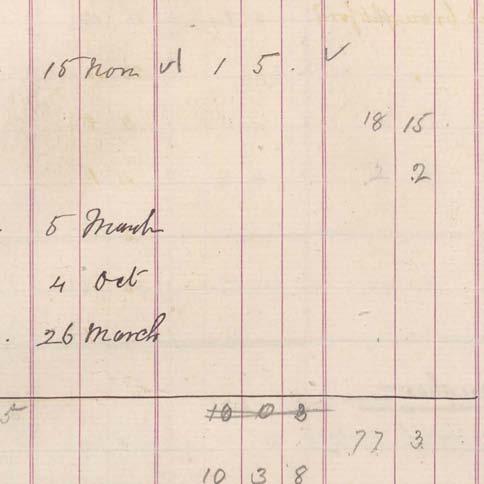 15 Nov 1 5 .
18 15
2 .2
5 March
4 Oct
26 March
5 10 0 8
77 3
10 3 8